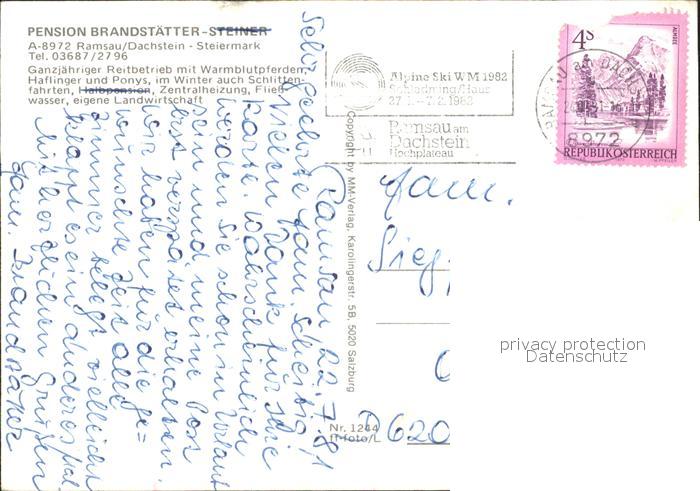 PENSION BRANDSTÄTTER-STEINER
A-8972 Ramsau/Dachstein - Steiermark
Tel. 03687/2796
Ganzjähriger Reitbetrieb mit Warmblutpferden,
Haflinger und Ponys, im Winter auch Schlitten-
fahrten, Halbpension, Zentralheizung, Fließ-
wasser, eigene Landwirtschaft
Alpine Ski WM 1982
Schladming/Haus
27.1.-7.2.1982
Ramsau am
Dachstein
Hochplateau
8972
4S
ALMSEE
REPUBLIK ÖSTERREICH
Copyright by MM-Verlag, Karolingerstr. 5B, 5020 Salzburg
Ramsau 22.7.81
Sehr geehrte Fam.
Vielen Dank für Ihre
Karte. Wahrscheinlich
werden Sie schon in Urlaub
sein und meine Post
erst verspätet erhalten.
Wir haben für die ge=
wünschte Zeit alle
Zimmer belegt vielleicht
klappt es ein anderes mal
Mit herzlichen Grüßen
Fam. Brandstätter
Fam.
Sieg
D 620
Nr. 1244
ff-foto/L
privacy protection
Datenschutz